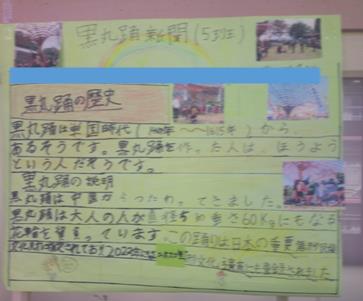 黒丸踊新聞(5班)
黒丸踊の歴史
黒丸踊は戦国時代(~1615年)から
あるそうです。黒丸踊を作った人は、ほうよう
という人だそうです。
黒丸踊の説明
黒丸踊は中国からつたわってきました。
黒丸踊は大人の人が直径5m重さ60Kgにもなる
花輪を背負っています。この踊りは日本の重要無形民俗
文化財に指定されている!!2022年にはユネスコ無形文化遺産に登録されました